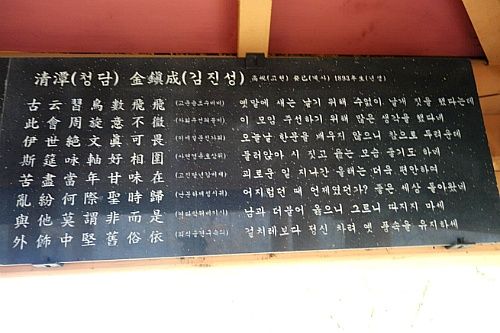 清潭(청담) 金鎭成(김진성) 高峴(고현) 癸巳(계사) 1893年生(년생)
古云習鳥數飛飛 (고운습조수비비) 옛말에 새는 날기 위해 수없이 날개 짓을 했다는데
此會周旋意不微 (차회주선의불미) 이 모임 주선하기 위해 많은 생각을 했다네
伊世絶文眞可畏 (이세절문진가외) 오늘날 한문을 배우지 않으니 참으로 두려운데
斯筵咏軸好相圍 (사연영축호상위) 둘러앉아 시 짓고 읊는 모습 즐기도 하네
苦盡當年甘味在 (고진당년감미재) 괴로운 일 지나간 올해는 더욱 편안하며
亂紛何際聖時歸 (난분하제성시귀) 어지럽던 때 언제였던가? 좋은 세상 돌아왔네
與他莫謂非而是 (여타막위비이시) 남과 더불어 옳으니 그르니 따지지 마세
外飾中堅舊俗依 (외식중견구속의) 겉치레보다 정신 차려 옛 풍속을 유지하세